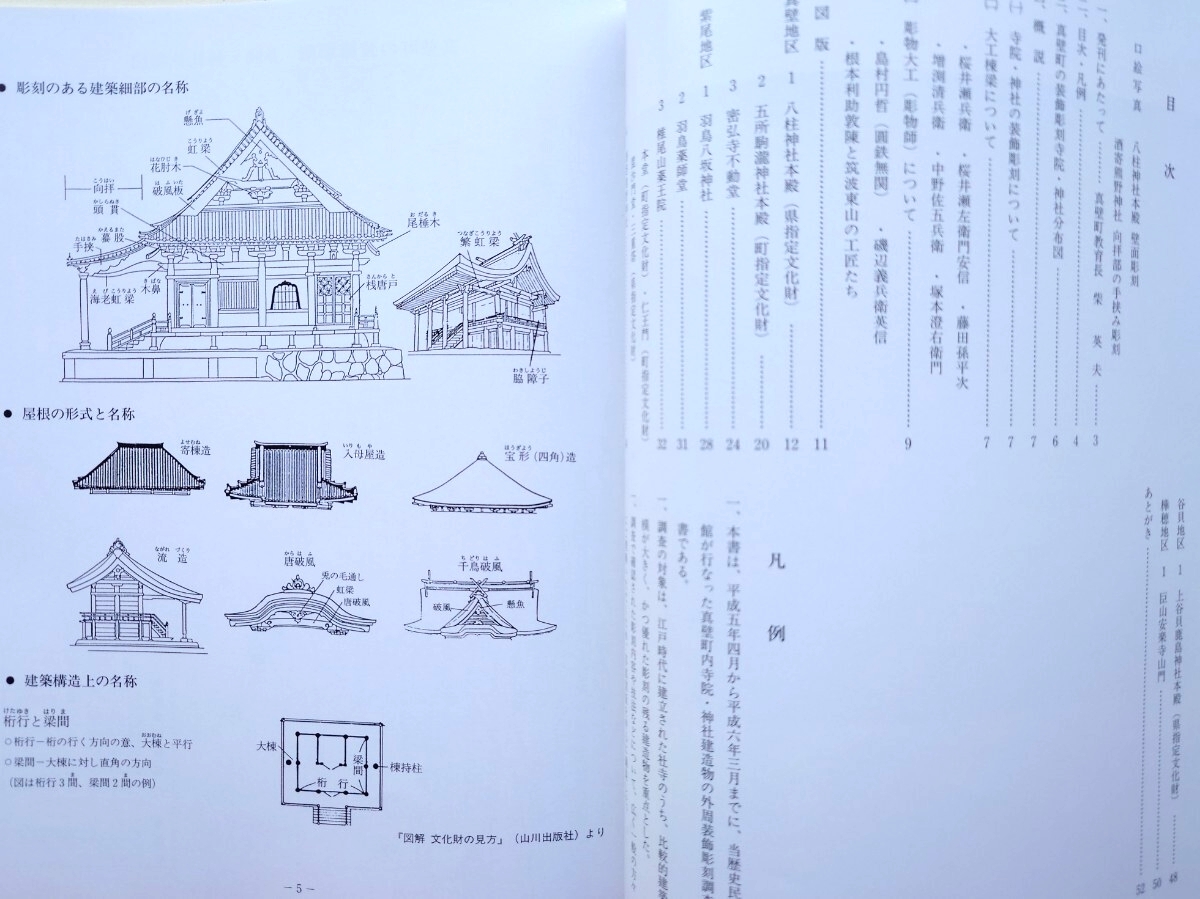 ● 彫刻のある建築細部の名称
げぎょ
懸魚
こうりょう
虹梁
はなひじき
花肘木
はふいた
破風板
こうはい
向拝
かしらぬき
頭貫
かえるまた
蟇股
たばさみ
手挟
きばな
木鼻
えびこうりょう
海老虹梁
おだるき
尾棰木
さんからと
桟唐戸
つなぎこうりょう
繁虹梁
わきしょうじ
脇障子
● 屋根の形式と名称
よせむね
寄棟造
いりもや
入母屋造
ほうぎょう
宝形(四角)造
ながれづくり
流造
からはふ
唐破風
兎の毛通し
虹梁
唐破風
ちどりはふ
千鳥破風
破風
懸魚
● 建築構造上の名称
けたゆき はりま
桁行と梁間
○桁行−桁の行く方向の意、大棟と平行
おおむね
○梁間−大棟に対し直角の方向
(図は桁行3間、梁間2間の例)
大棟
梁間
桁行
棟持柱
『図解 文化財の見方』(山川出版社)より
−5−
目次
口絵写真 八柱神社本殿 壁面彫刻
酒寄熊野神社 向拝部の手挟み彫刻
一、発刊にあたって……真壁町教育長 柴 英夫……3
二、目次・凡例……4
三、真壁町の装飾彫刻寺院・神社分布図……6
概説……7
(一) 寺院・神社の装飾彫刻について……7
大工棟梁について……7
・桜井瀬兵衛 ・桜井瀬左衛門安信 ・藤田孫平次
・増渕清兵衛 ・中野佐五兵衛 ・塚本澄右衛門
彫物大工(彫物師)について……9
・島村円哲(圓鉄無関) ・磯辺義兵衛英信
・根本利助敦陳と筑波東山の工匠たち
図版……11
真壁地区 1 八柱神社本殿(県指定文化財)……12
2 五所駒瀧神社本殿(町指定文化財)……20
3 密弘寺不動堂……24
紫尾地区 1 羽鳥八坂神社……28
2 羽鳥薬師堂……31
3 椎尾山薬王院……32
本堂(町指定文化財)・仁王門(町指定文化財)
谷貝地区 1 上谷貝鹿島神社本殿(県指定文化財)……48
樺穂地区 1 巨山安楽寺山門……50
あとがき……52
凡例
一、本書は、平成五年四月から平成六年三月までに、当歴史民
館が行なった真壁町内寺院・神社建造物の外周装飾彫刻調査
書である。
一、調査の対象は、江戸時代に建立された社寺のうち、比較的建築
模が大きく、かつ優れた彫刻の残る建造物を重点とした。